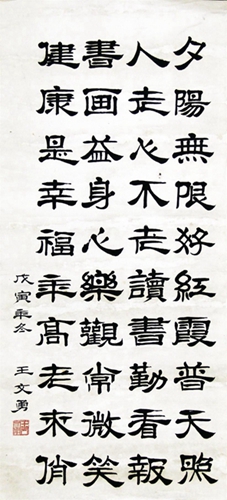 夕陽無限好紅霞普天照
人老心不老讀書勤看報
書画益身心樂觀常微笑
健康是幸福年高老来俏
戊寅年冬 王文勇